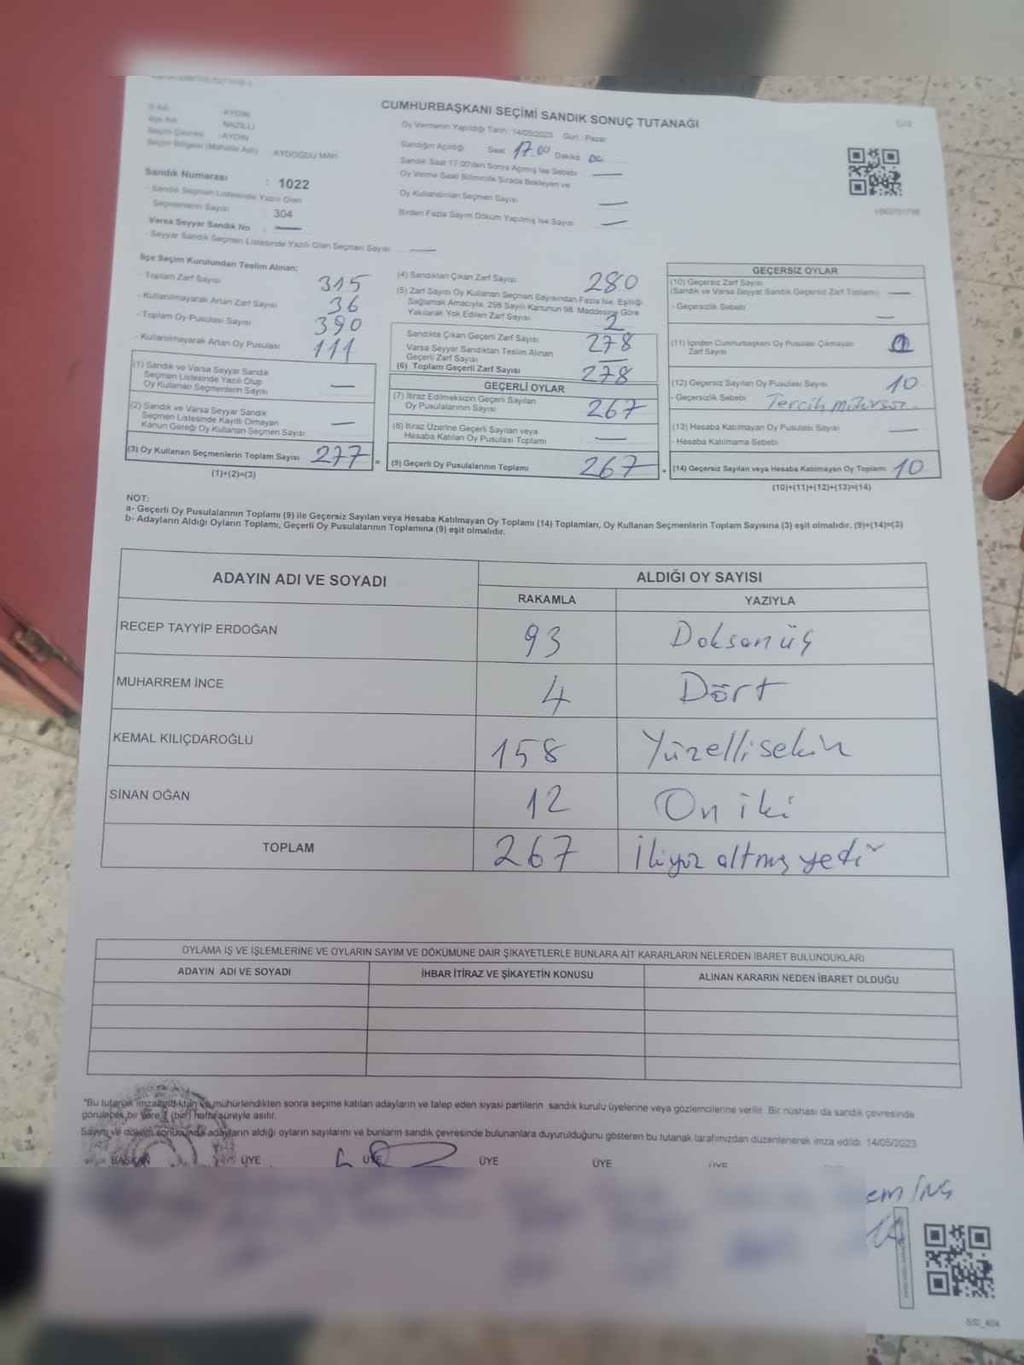 CUMHURBAŞKANI SEÇİMİ SANDIK SONUÇ TUTANAĞI
İl Adı : AYDIN
İlçe Adı : NAZİLLİ
Seçim Çevresi : AYDIN
Seçim Bölgesi (Mahalle Adı) : AYDOĞDU MAH.
Oy Vermenin Yapıldığı Tarih : 14/05/2023 Gün : Pazar
Sandığın Açıldığı Saat 17.00 Dakika 00
Sandık Saat 17.00'den Sonra Açılmış İse Sebebi
Oy Verme Saati Bitiminde Sırada Bekleyen ve
Oy Kullandırılan Seçmen Sayısı
Birden Fazla Sayım Döküm Yapılmış İse Sayısı
Sandık Numarası : 1022
- Sandık Seçmen Listesinde Yazılı Olan
Seçmenlerin Sayısı : 304
Varsa Seyyar Sandık No :
- Seyyar Sandık Seçmen Listesinde Yazılı Olan Seçmen Sayısı :
İlçe Seçim Kurulundan Teslim Alınan;
- Toplam Zarf Sayısı 315
- Kullanılmayarak Artan Zarf Sayısı 36
- Toplam Oy Pusulası Sayısı 390
- Kullanılmayarak Artan Oy Pusulası 111
(1) Sandık ve Varsa Seyyar Sandık
Seçmen Listesinde Yazılı Olup
Oy Kullanan Seçmenlerin Sayısı
(2) Sandık ve Varsa Seyyar Sandık
Seçmen Listesinde Kayıtlı Olmayan
Kanun Gereği Oy Kullanan Seçmen Sayısı
(3) Oy Kullanan Seçmenlerin Toplam Sayısı 277
(1)+(2)=(3)
(4) Sandıktan Çıkan Zarf Sayısı 280
(5) Zarf Sayısı Oy Kullanan Seçmen Sayısından Fazla İse, Eşitliği
Sağlamak Amacıyla, 298 Sayılı Kanunun 98. Maddesine Göre
Yakılarak Yok Edilen Zarf Sayısı 2
Sandıkta Çıkan Geçerli Zarf Sayısı 278
Varsa Seyyar Sandıktan Teslim Alınan
Geçerli Zarf Sayısı
(6) Toplam Geçerli Zarf Sayısı 278
GEÇERLİ OYLAR
(7) İtiraz Edilmeksizin Geçerli Sayılan
Oy Pusulalarının Sayısı 267
(8) İtiraz Üzerine Geçerli Sayılan veya
Hesaba Katılan Oy Pusulası Toplamı
(9) Geçerli Oy Pusulalarının Toplamı 267
GEÇERSİZ OYLAR
(10) Geçersiz Zarf Sayısı
(Sandık ve Varsa Seyyar Sandık Geçersiz Zarf Toplamı)
- Geçersizlik Sebebi
(11) İçinden Cumhurbaşkanı Oy Pusulası Çıkmayan
Zarf Sayısı
(12) Geçersiz Sayılan Oy Pusulası Sayısı 10
- Geçersizlik Sebebi Tercih
(13) Hesaba Katılmayan Oy Pusulası Sayısı
- Hesaba Katılmama Sebebi
(14) Geçersiz Sayılan veya Hesaba Katılmayan Oy Toplamı 10
(10)+(11)+(12)+(13)=(14)
NOT:
a- Geçerli Oy Pusulalarının Toplamı (9) ile Geçersiz Sayılan veya Hesaba Katılmayan Oy Toplamı (14) Toplamları, Oy Kullanan Seçmenlerin Toplam Sayısına (3) eşit olmalıdır. (9)+(14)=(3)
b- Adayların Aldığı Oyların Toplamı, Geçerli Oy Pusulalarının Toplamına (9) eşit olmalıdır.
ADAYIN ADI VE SOYADI ALDIĞI OY SAYISI
RAKAMLA YAZIYLA
RECEP TAYYİP ERDOĞAN 93 Doksanüç
MUHARREM İNCE 4 Dört
KEMAL KILIÇDAROĞLU 158 Yüzellisekiz
SİNAN OĞAN 12 On iki
TOPLAM 267 İkiyüz altmış yedi
OYLAMA İŞ VE İŞLEMLERİNE VE OYLARIN SAYIM VE DÖKÜMÜNE DAİR ŞİKAYETLERLE BUNLARA AİT KARARLARIN NELERDEN İBARET BULUNDUKLARI
ADAYIN ADI VE SOYADI İHBAR İTİRAZ VE ŞİKAYETİN KONUSU ALINAN KARARIN NEDEN İBARET OLDUĞU
*Bu tutanak imzalandıktan ve mühürlendikten sonra seçime katılan adayların ve talep eden siyasi partilerin sandık kurulu üyelerine veya gözlemcilerine verilir. Bir nüshası da sandık çevresinde
görülecek bir yere 1 (bir) hafta süreyle asılır.
Sayım ve döküm sonucunda adayların aldığı oyların sayılarını ve bunların sandık çevresinde bulunanlara duyurulduğunu gösteren bu tutanak tarafımızdan düzenlenerek imza edildi. 14/05/2023
BAŞKAN ÜYE ÜYE ÜYE ÜYE ÜYE